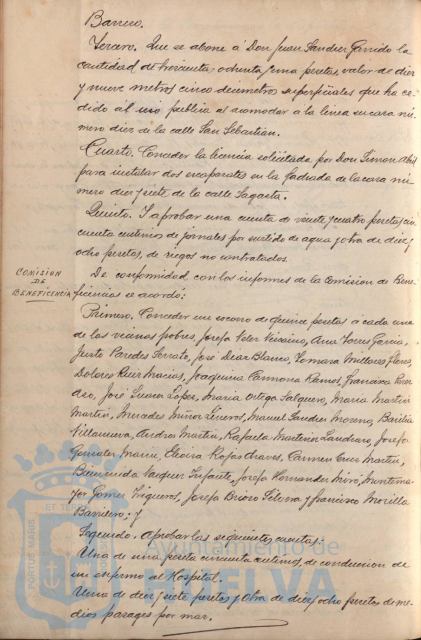 Barrero.
Tercero. Que se abone á Don Juan Sandier Garrido la
cantidad de trescientas ochenta y una pesetas, valor de diez
y nueve metros cinco decimetros superficiales que ha ce-
dido al uso publico al acomodar a la linea su casa nú-
mero diez de la calle San Sebastian.
Cuarto. Conceder la licencia solicitada por Don Simon
para instalar dos escaparates en la fachada de la casa nú-
mero diez y siete de la calle Sagasta.
Quinto. Y aprobar una cuenta de veinte y cuatro pesetas cin-
cuenta centimos de jornales por surtido de agua y otra de diez y
ocho pesetas, de riegos no contratados.
COMISION
DE
BENEFICENCIA
De conformidad con los informes de la Comision de Bene-
ficencia se acordó:
Primero. Conceder un socorro de quince pesetas á cada uno
de los vecinos pobres, Josefa Velez Ana Torres Garcia,
Justo Paredes José Diaz Blanco, Tomara Millares Flores,
Dolores Ruiz Macias, Joaquina Carmona Ramos, Francisca
José Suarez López, Maria Ortega Salguero, Maria Martin
Martin, Mercedes Muñoz Manuel Sandier Moreno, Basilia
Villanueva, Andres Martin, Rafaela Martinez Landero, Josefa
Gonzalez Marin, Elvira Rojas Chaves, Carmen Cruz Martin,
Bienvenida Vazquez Infante, Josefa Hernandez Miró, Montema-
yor Gomez Josefa y Francisco Morilla
Barrilero; y
Segundo. Aprobar las siguientes cuentas:
Una de una peseta cincuenta centimos, de conduccion de
un enfermo al Hospital.
Una de diez y siete pesetas y otra de diez y ocho pesetas de me-
dios pasages por mar.
PORTUS MARIS
ET TERRÆ
Ayuntamiento de
HUELVA